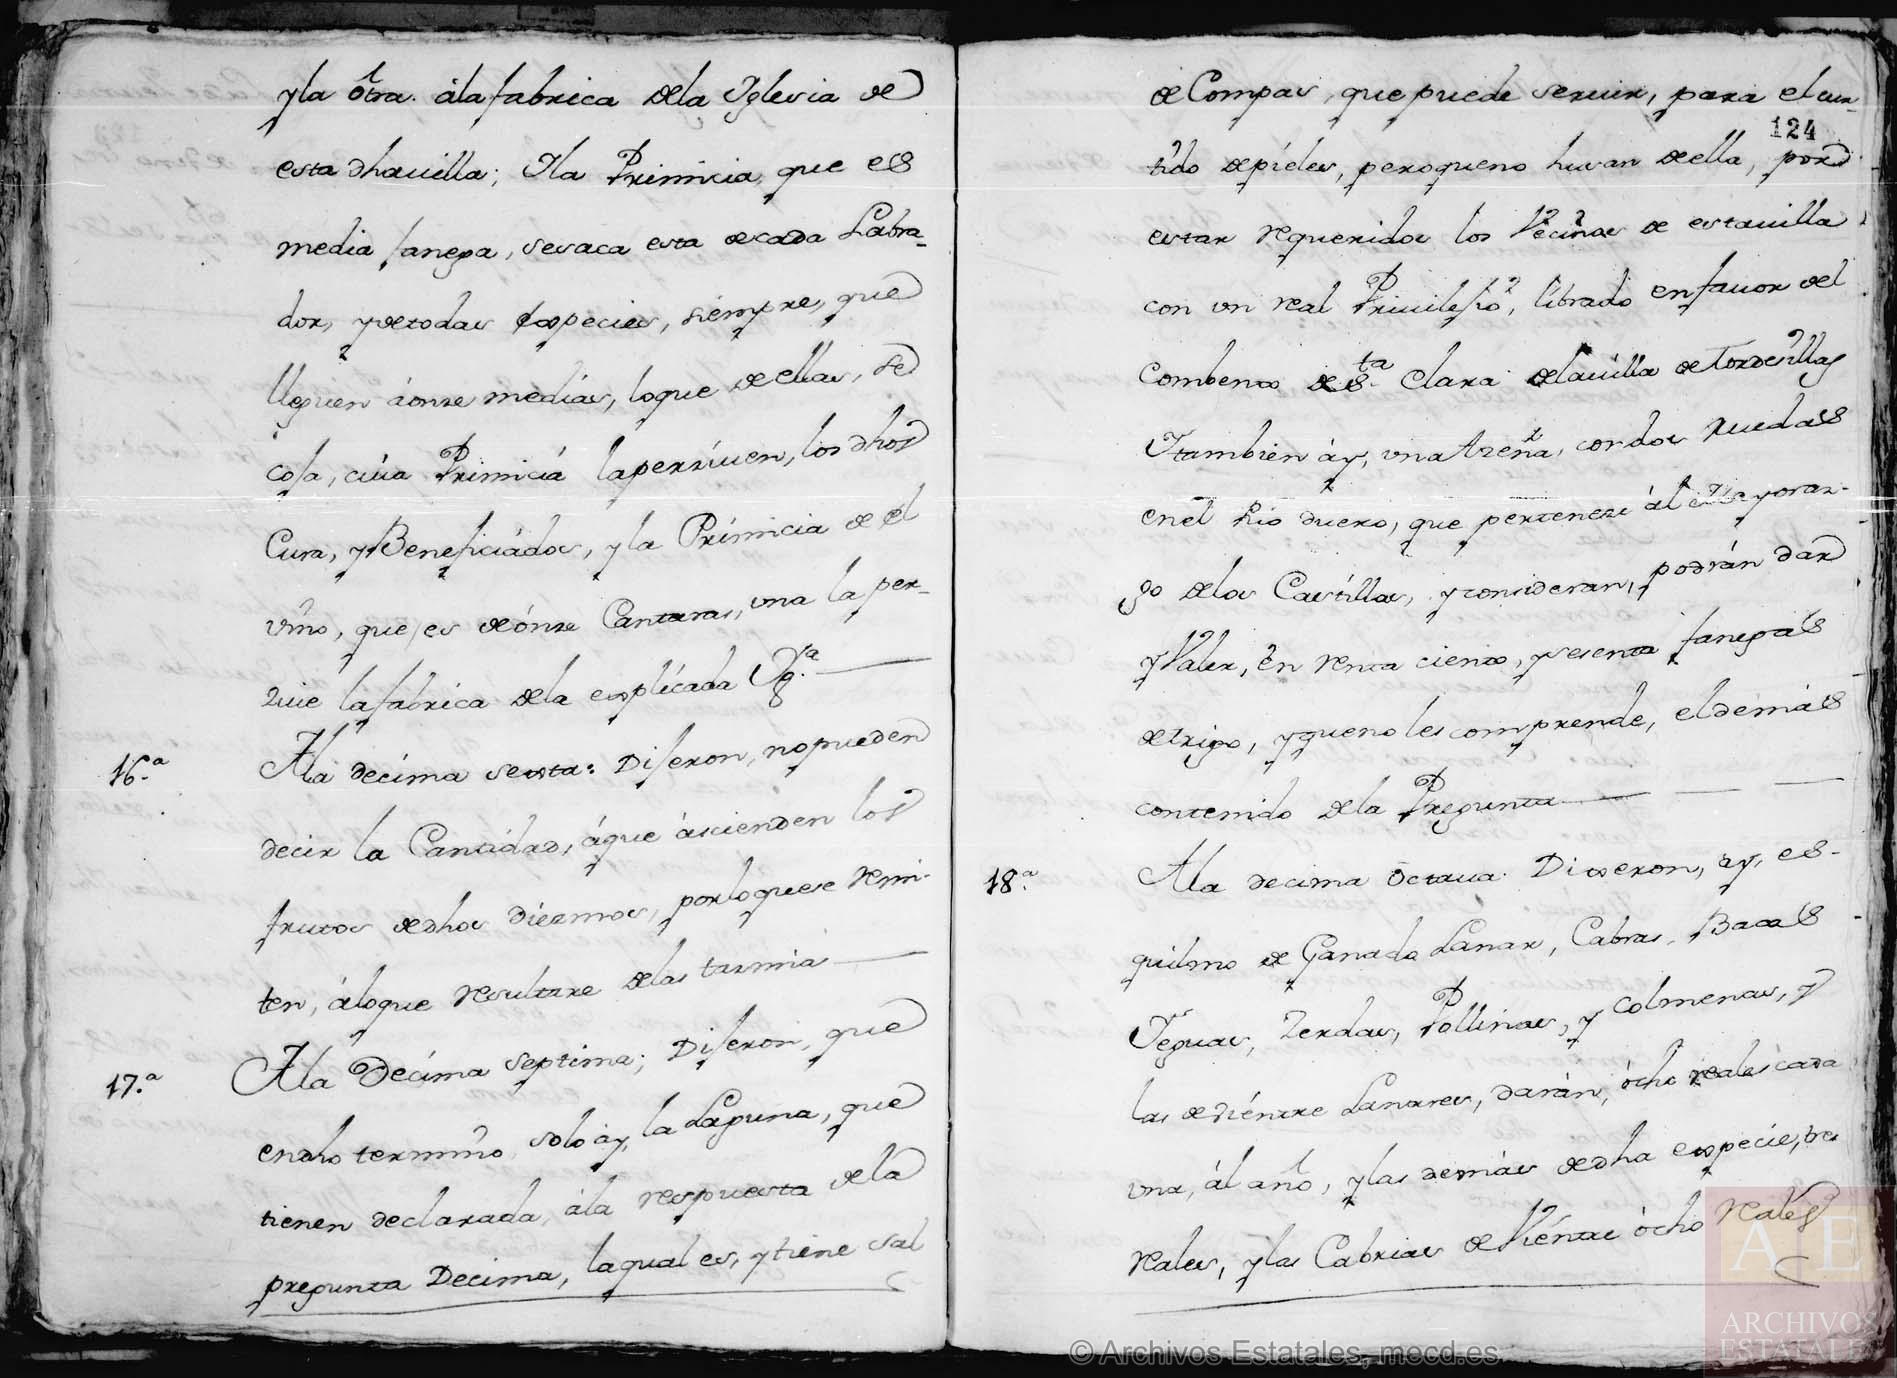 y la otra. ála fabrica dela Iglesia de
esta dha uilla; Ila Primicia, que es
media fanega, sesaca esta decada Labra-
dor, y detodas especies, siempre, que
lleguen áonze medias, loque deellas, se
coja, cuia Primicia laperziuen, los dhos
Cura, y Beneficiádos, y la Primicia de el
vino, que, es deónze Cantaras, una la per-
ziue lafabrica dela explicada Yg.ª
16.ª
Ala decima sexta: Dijeron, nopueden
decir la Cantidad, áque áscienden los
frutos dedhos Diezmos, porloquese remi-
ten, áloque resultare delas tazmias
17.ª
Ala Decima septima; Dijeron, que
endho termino solo ay, la Laguna, que
tienen declarada, ála respuesta dela
pregunta Decima, laqual es, y tiene sal
de Compas, quepuede seruir, para el cur-
124
tido depieles, peroqueno husan deella, por
estar requeridos los Vecinos de estauilla
con un real Priuilejio, librado enfauor del
Combento de S.ta Clara delauilla deTordesillas
Itambien ay, una Azeña, con dos ruedas
enel Rio duero, que perteneze ál Mayoraz-
go delos Castillas, y consideran, podrán dar
y Valer, en renta ciento, y sesenta fanegas
detrigo, y queno les comprende, eldemás
contenido dela Pregunta
18.ª
Ala decima octaua. Dixeron, ay, es-
quilmo de Ganado Lanar, Cabras, Bacas
Yeguas, Zerdas, Pollinas, y colmenas, y
las deVientre Lanares, darán, ócho reales cada
una, ál año, y las demás dedha especie, tres
reales, y las Cabrias de Vientre ócho reales
© Archivos Estatales, mecd.es
AE
ARCHIVOS
ESTATALES